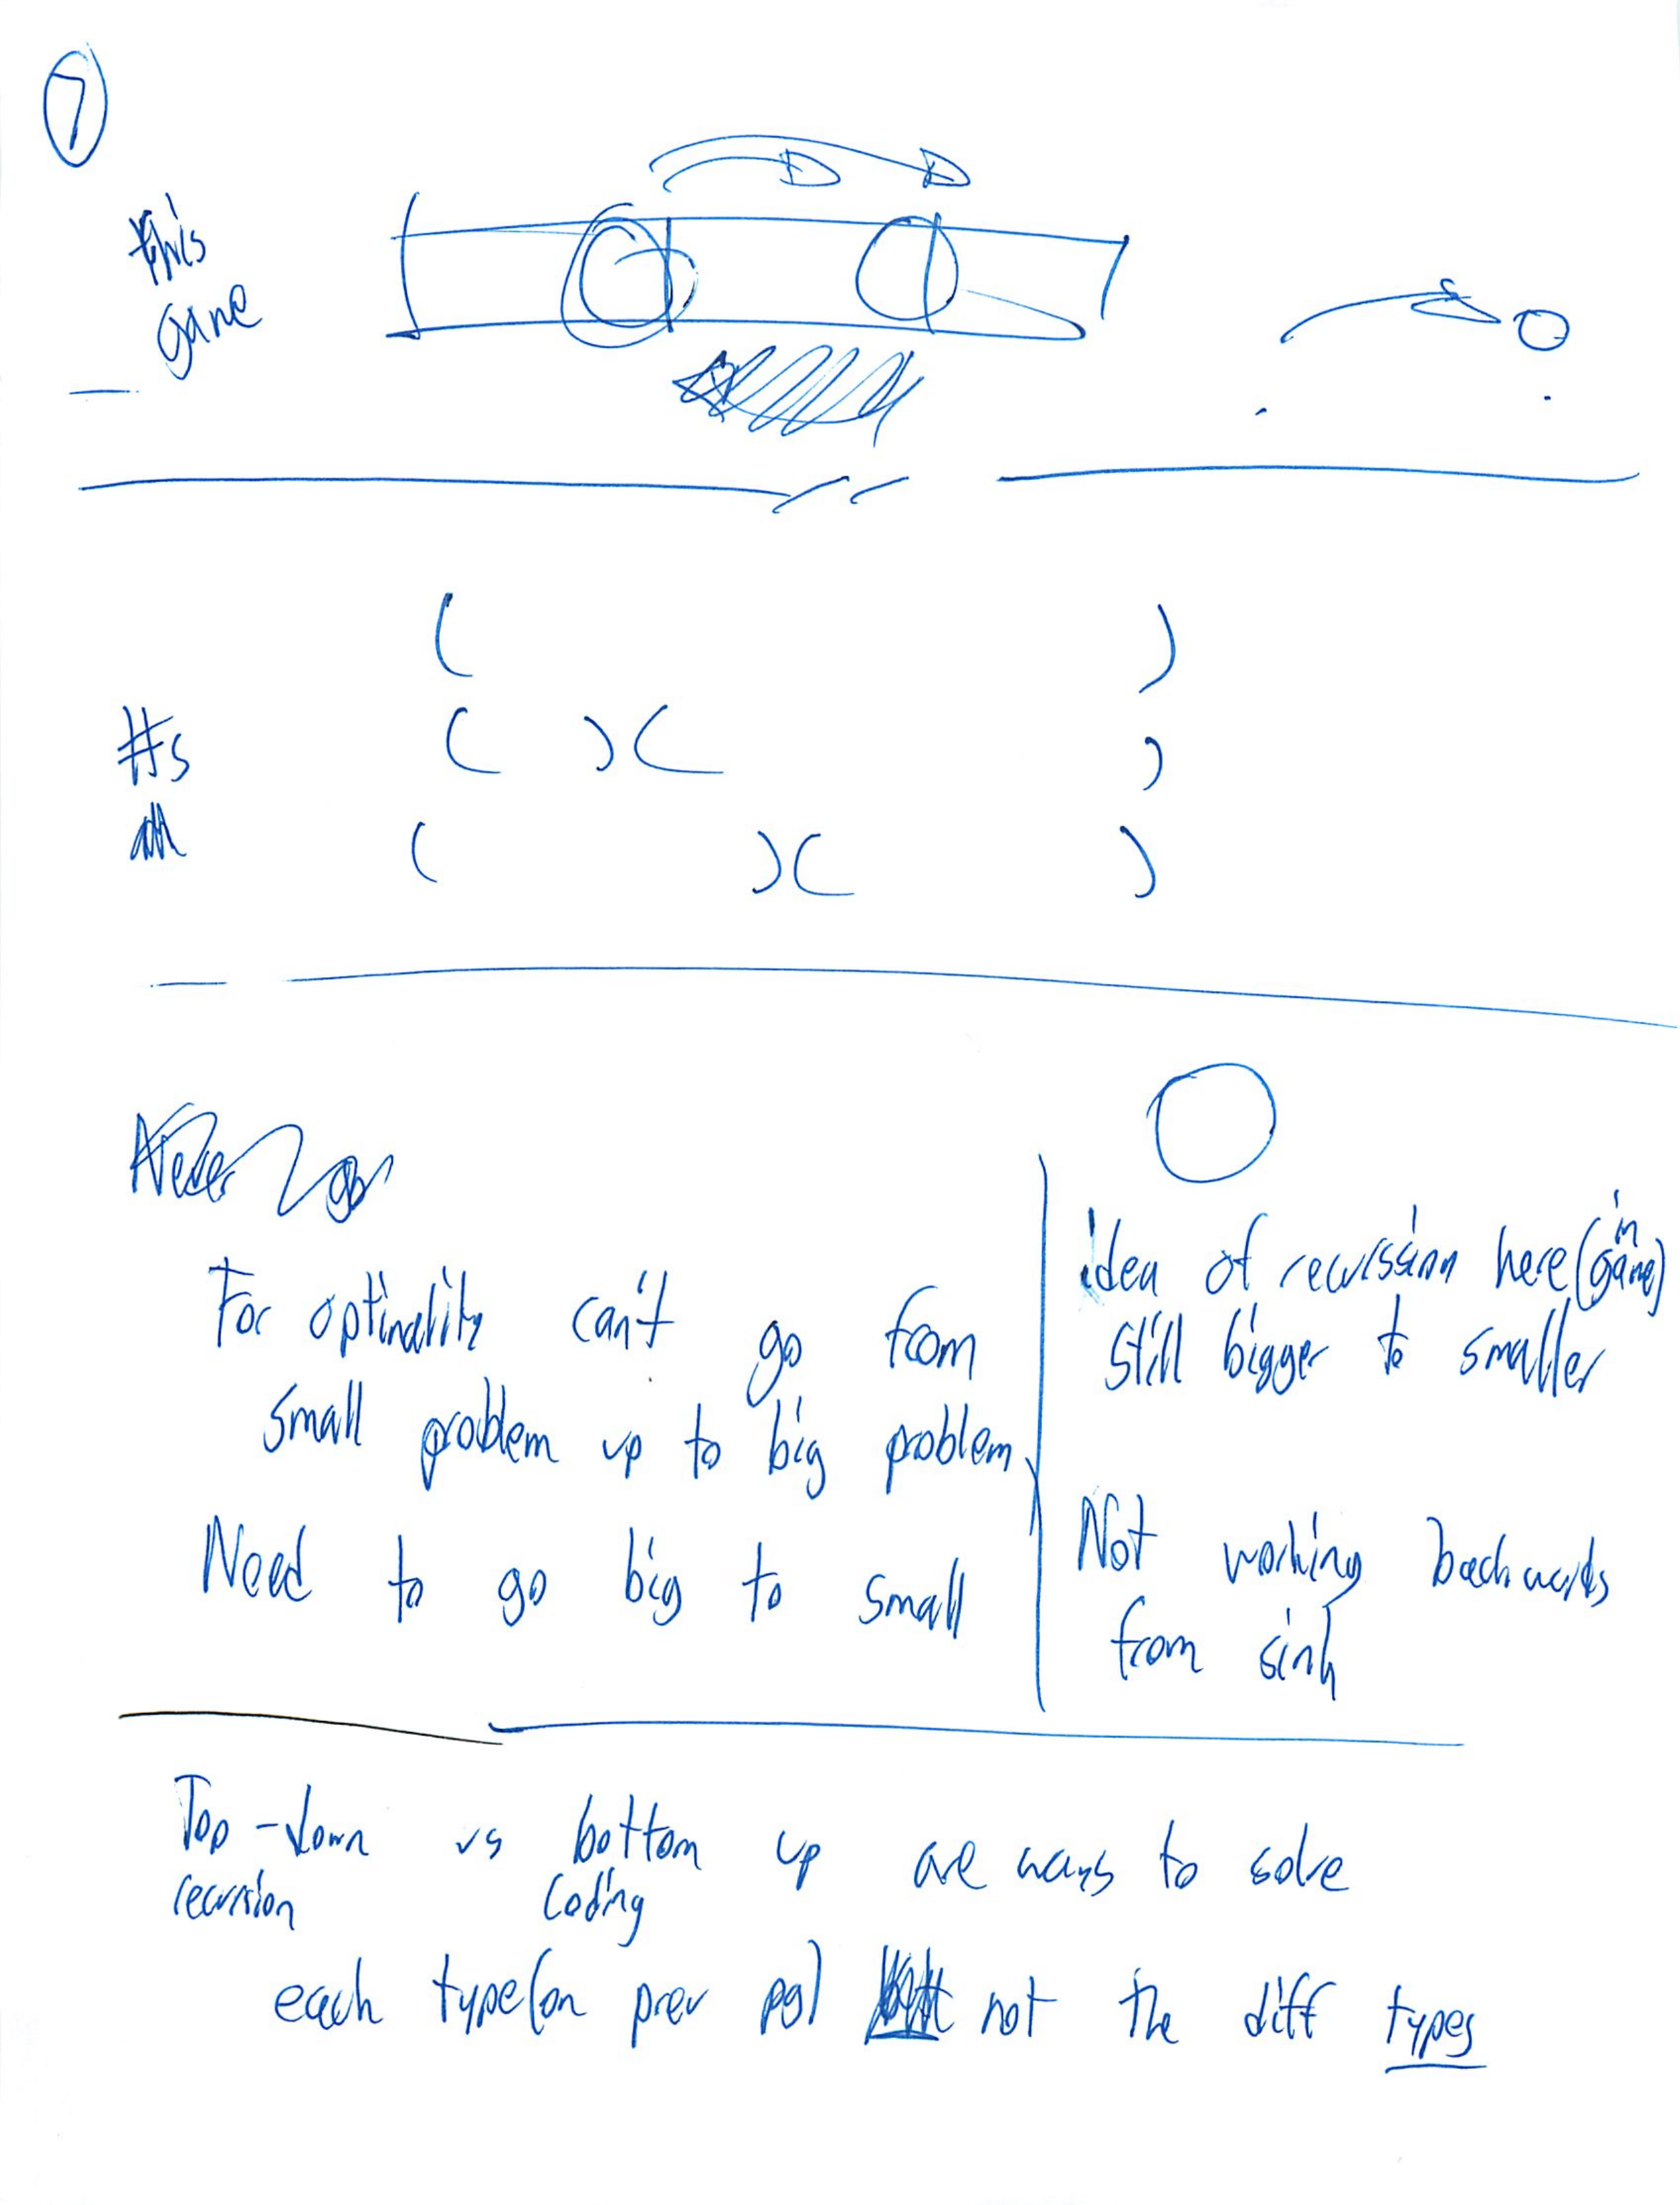 7
this
game
( )
#s ( ) ( )
( ) ( )
For optimality can't go from
small problem up to big problem
Need to go big to small
idea of recurssion here (in game)
still bigger to smaller
Not working backwards
from sink
Top-down vs bottom up are ways to solve
recursion coding
each type (on prev pg) not the diff types